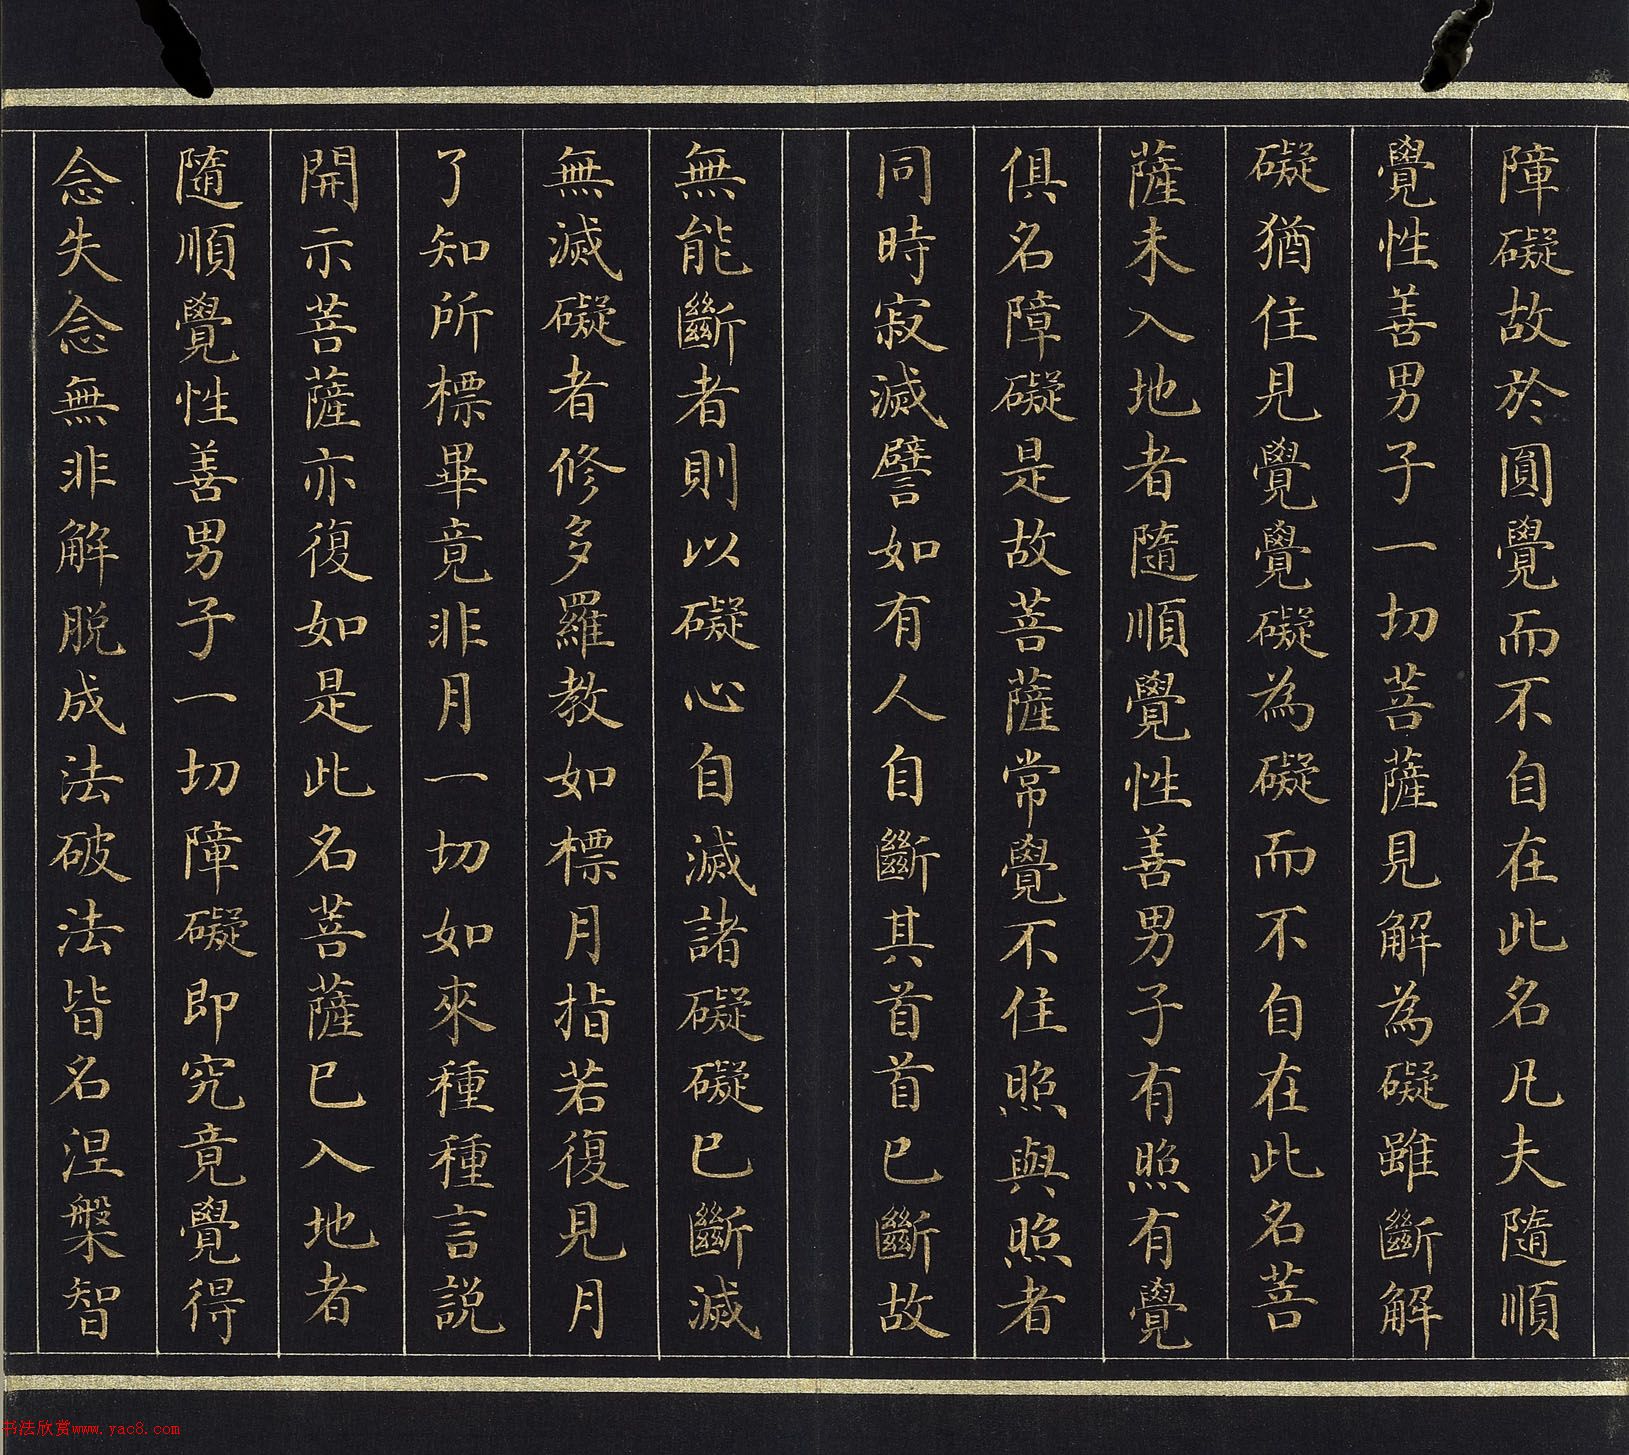 障礙故於圓覺而不自在此名凡夫隨順
覺性善男子一切菩薩見解為礙雖斷解
礙猶住見覺覺礙為礙而不自在此名菩
薩未入地者隨順覺性善男子有照有覺
俱名障礙是故菩薩常覺不住照與照者
同時寂滅譬如有人自斷其首首已斷故
無能斷者則以礙心自滅諸礙礙已斷滅
無滅礙者修多羅教如標月指若復見月
了知所標畢竟非月一切如來種種言說
開示菩薩亦復如是此名菩薩已入地者
隨順覺性善男子一切障礙即究竟覺得
念失念無非解脫成法破法皆名涅槃智
书法欣赏www.yac8.com